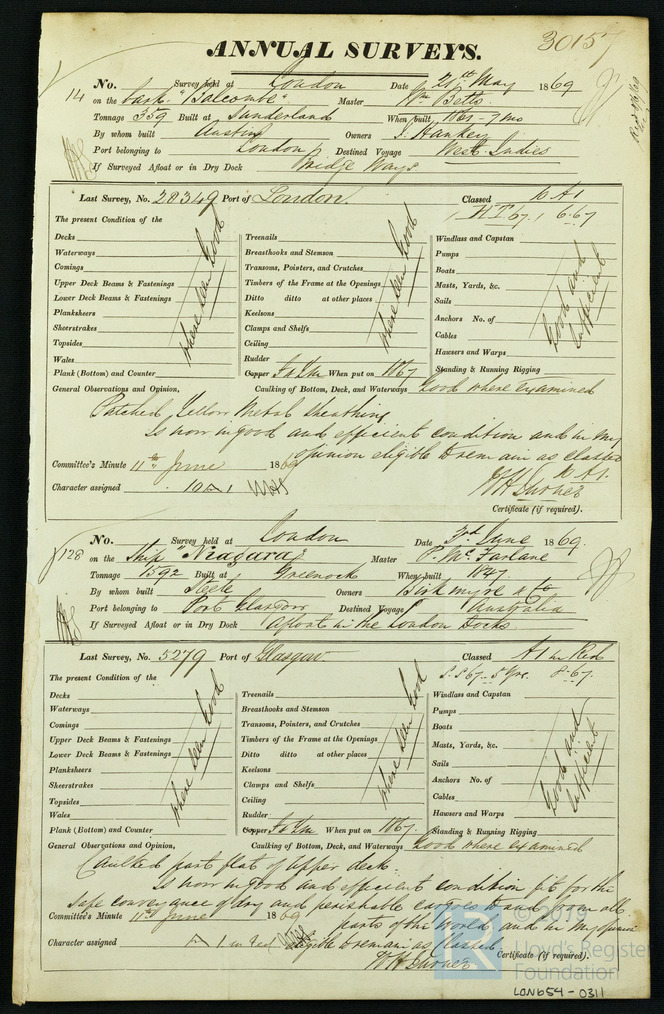 ANNUAL SURVEYS.
30157
14
No. Survey held at London Date 21st May 1869
on the bark "Balcombe" Master Wm Betts
Tonnage 359 Built at Sunderland When built 1861 - 7 mo
By whom built Austin Owners J. Hankey
Port belonging to London Destined Voyage West Indies
If Surveyed Afloat or in Dry Dock Bridge Ways.
Last Survey, No. 28349 Port of London. Classed 10 A1
HT 67. 6.67
The present Condition of the
Decks
Waterways
Comings
Upper Deck Beams & Fastenings
Lower Deck Beams & Fastenings
Planksheers
Sheerstrakes
Topsides
Wales
Plank (Bottom) and Counter
where seen Good
Treenails
Breasthooks and Stemson
Transoms, Pointers, and Crutches
Timbers of the Frame at the Openings
Ditto ditto at other places
Keelsons
Clamps and Shelfs
Ceiling
Rudder
Copper When put on 1867
where seen Good
Windlass and Capstan
Pumps
Boats
Masts, Yards, &c.
Sails
Anchors No. of
Cables
Hawsers and Warps
Standing & Running Rigging
Good and
Sufficient
General Observations and Opinion, Caulking of Bottom, Deck, and Waterways Good where examined
Patched Yellow Metal Sheathing
Is now in good and efficient condition and in my
opinion eligible to remain as classed
10 A1.
Committee's Minute 11th June 1869
Character assigned 10 A 1
Certificate (if required).
128
No. Survey held at London Date 3rd June 1869.
on the Ship "Niagara" Master P. McFarlane
Tonnage 1592 Built at Greenock When built 1847.
By whom built Steele Owners Birkmyre & Co
Port belonging to Port Glasgow Destined Voyage Australia
If Surveyed Afloat or in Dry Dock Afloat in the London Docks
Last Survey, No. 5279 Port of Glasgow Classed A1 in Red
S.S 67 - 5 Yrs. 8.67
The present Condition of the
Decks
Waterways
Comings
Upper Deck Beams & Fastenings
Lower Deck Beams & Fastenings
Planksheers
Sheerstrakes
Topsides
Wales
Plank (Bottom) and Counter
where seen Good
Treenails
Breasthooks and Stemson
Transoms, Pointers, and Crutches
Timbers of the Frame at the Openings
Ditto ditto at other places
Keelsons
Clamps and Shelfs
Ceiling
Rudder
Copper When put on 1867.
where seen Good
Windlass and Capstan
Pumps
Boats
Masts, Yards, &c.
Sails
Anchors No. of
Cables
Hawsers and Warps
Standing & Running Rigging
Good and
Sufficient
General Observations and Opinion, Caulking of Bottom, Deck, and Waterways Good where examined
Caulked part flat of upper deck.
Is now in good and efficient condition fit for the
safe conveyance of dry and perishable cargoes to and from all
parts of the World and in my opinion
eligible to remain as Classed.
Committee's Minute 11th June 1869
Character assigned A 1 in red
Certificate (if required).
© 2019
Lloyd's Register
Foundation
LON654-0311